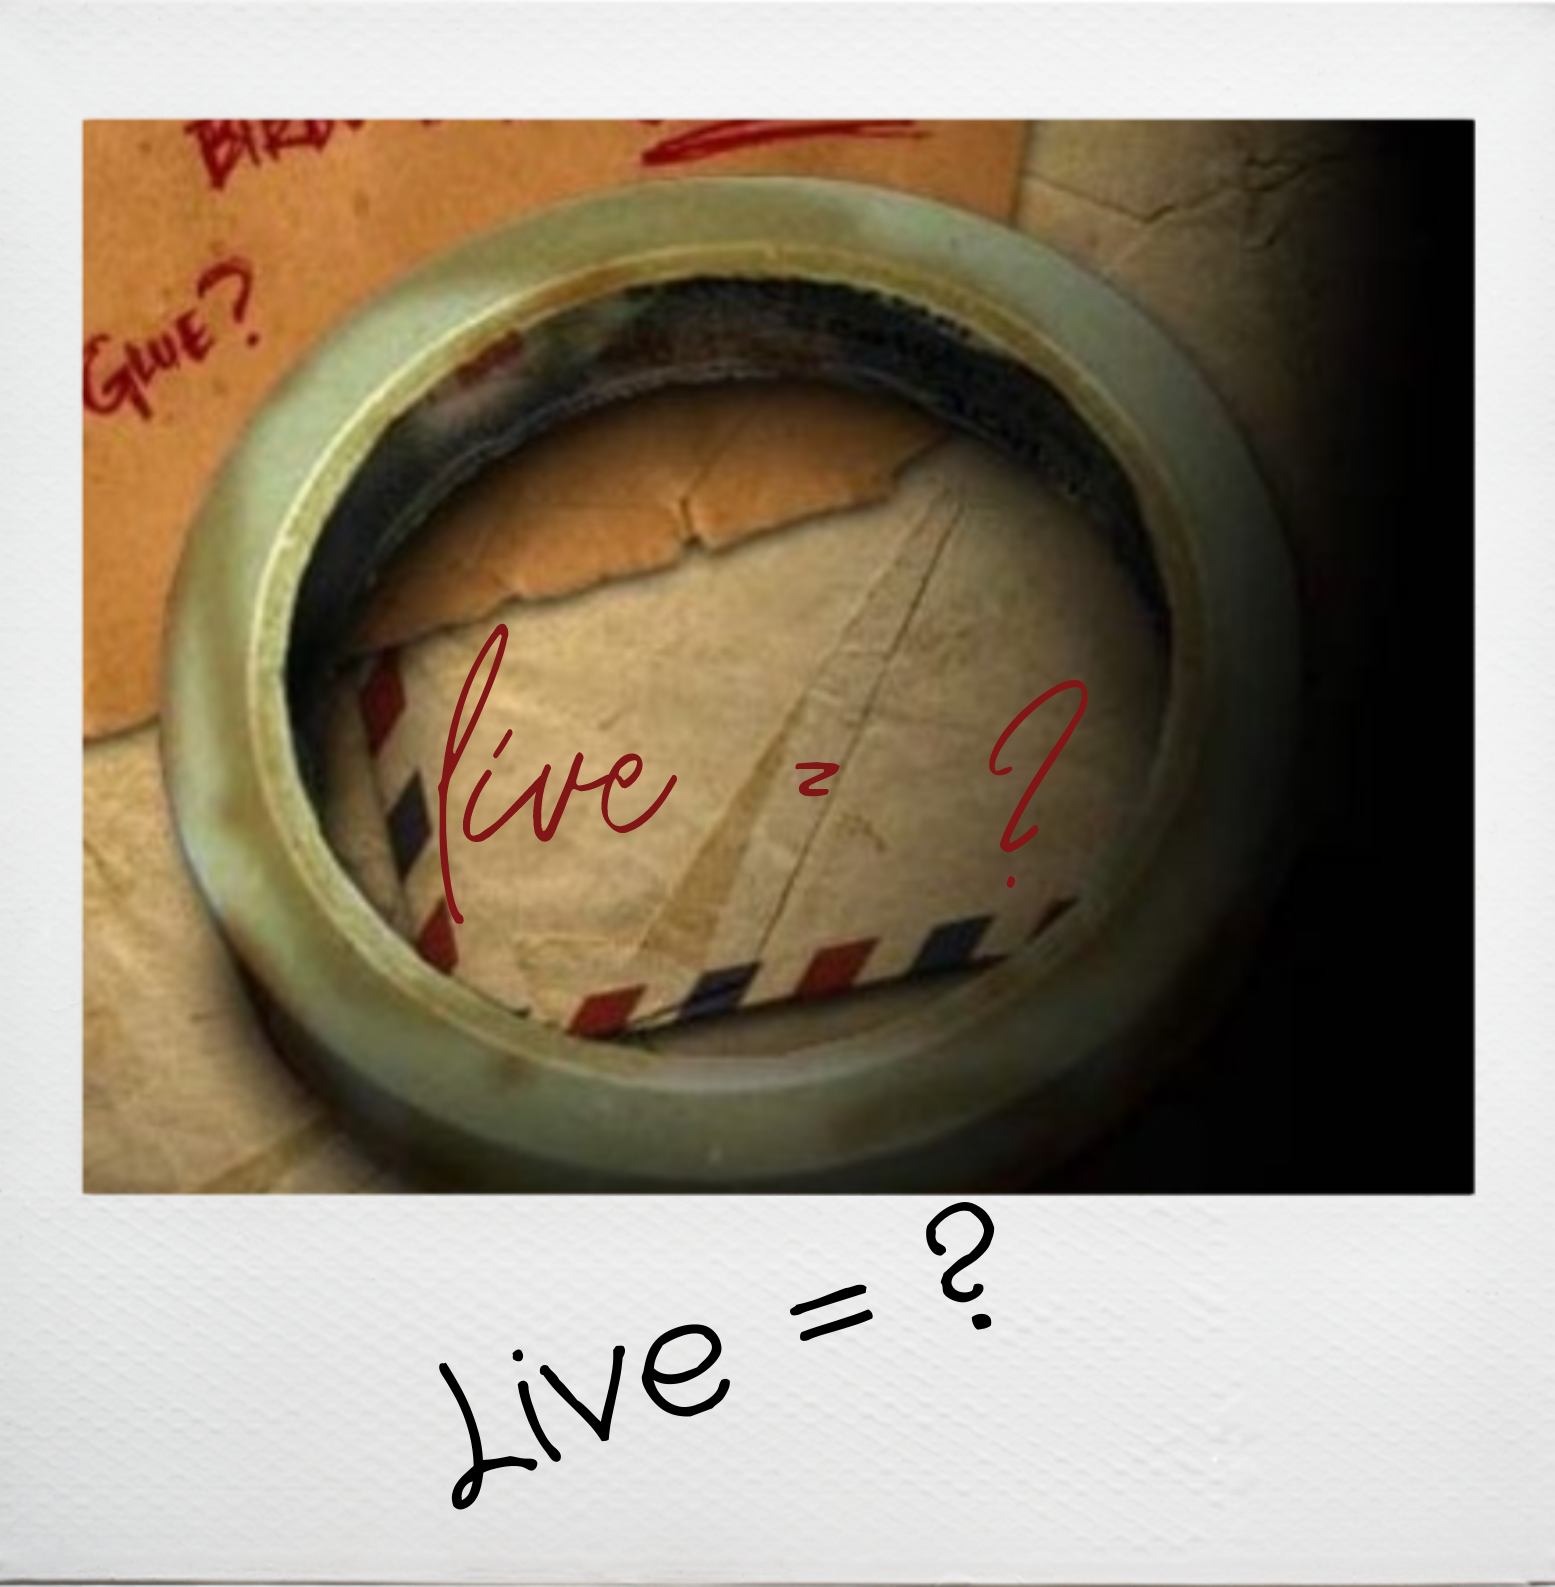 GLUE?
live = ?
Live = ?